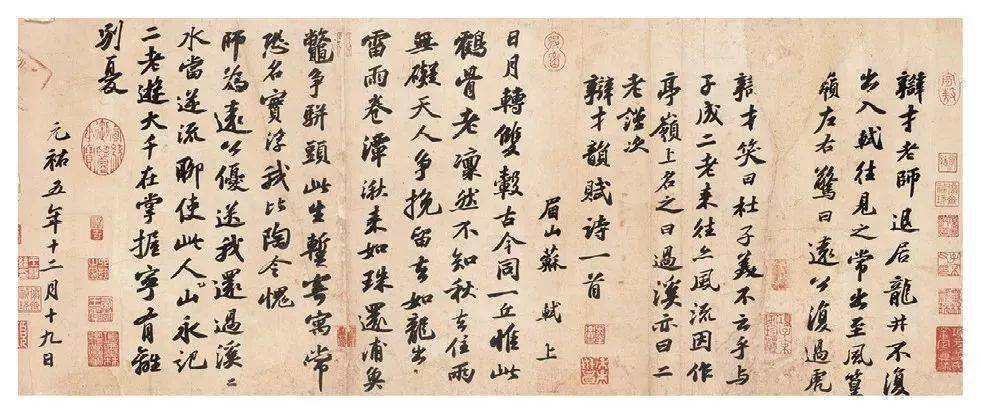 辯才老師退居龍井不復
出入軾往見之常出至風篁
嶺左右驚曰遠公復過虎
辯才笑曰杜子美不云乎與
子成二老來往亦風流因作
亭嶺上名之曰過溪亦曰二
老謹次
辯才韻賦詩一首
眉山蘇軾上
日月轉雙轂古今同一丘惟此
鶴骨老凜然不知秋去住兩
無礙天人爭挽留去如龍出
雷雨卷潭湫來如珠還浦魚
鼈爭駢頭此生暫寄寓常
恐名實浮我比陶令愧
師為遠公優送我還過溪〻
水當逆流聊使此人山永記
二老遊大千在掌握寧有離
別憂
元祐五年十二月十九日